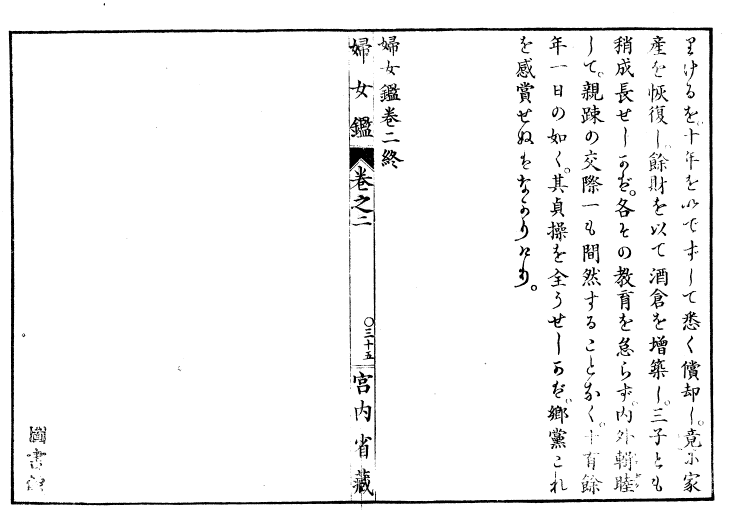 りけるを、十年を出でずして悉く償却し。竟に家
産を恢復し、餘財を以て酒倉を増築し。三子とも
稍成長せしかば。各その教育を怠らず、内外輯睦
して。親踈の交際一も間然することなく。十有餘
年一日の如く。其貞操を全うせしかば、鄕黨これ
を感賞せぬはなかりけり。
婦女鑑卷二終
婦女鑑 卷之二 〇三十五 宮内省藏
圖書